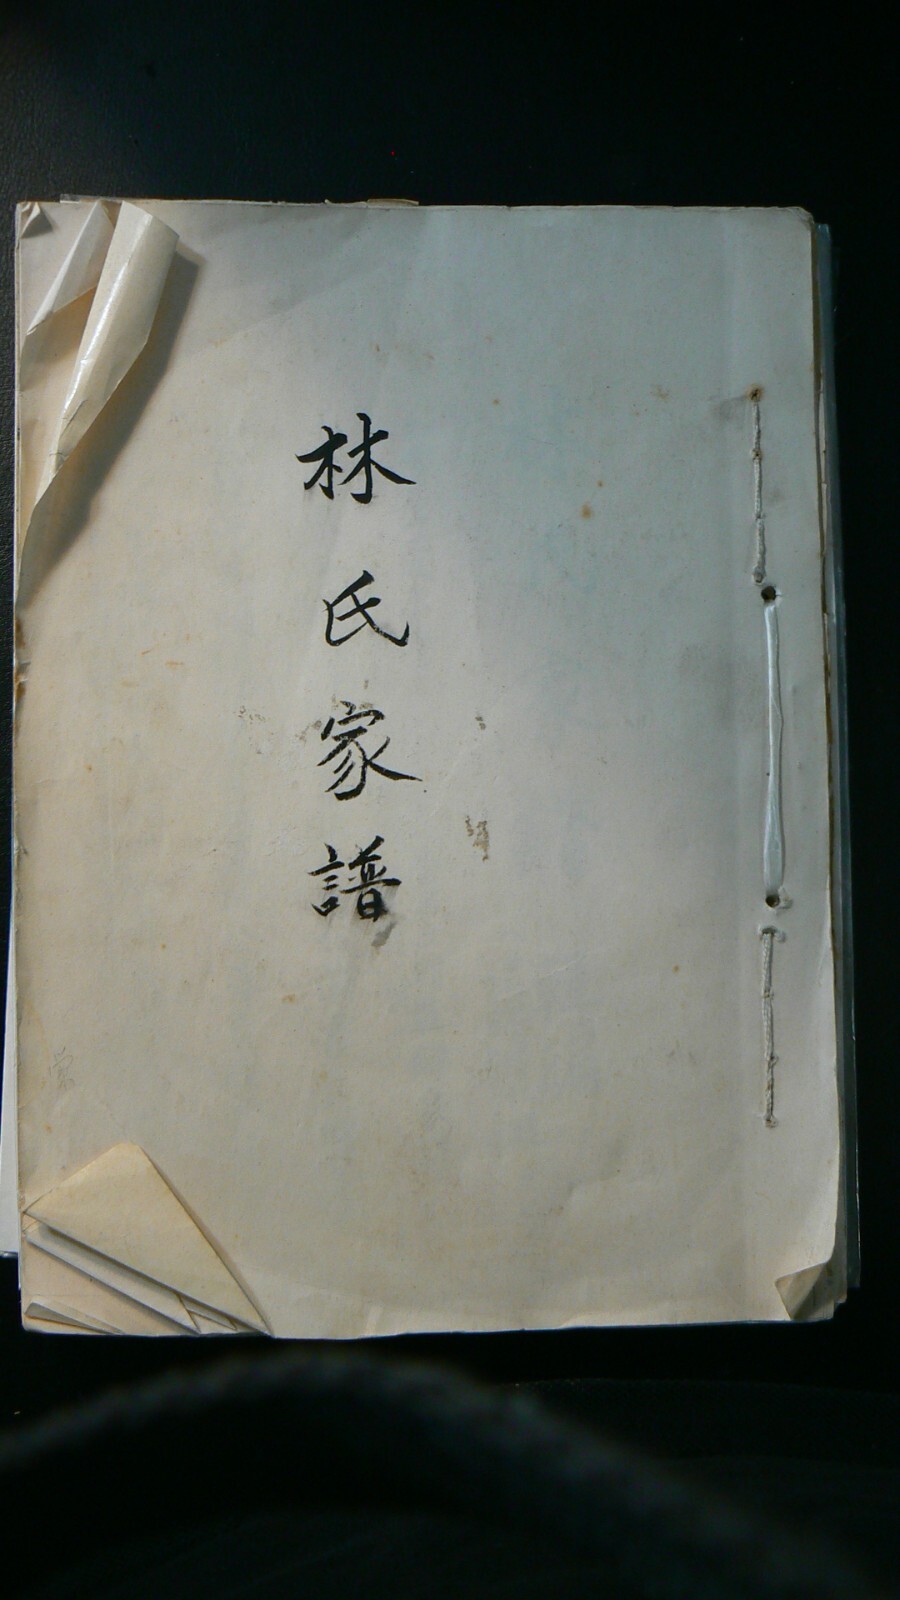 林氏家譜